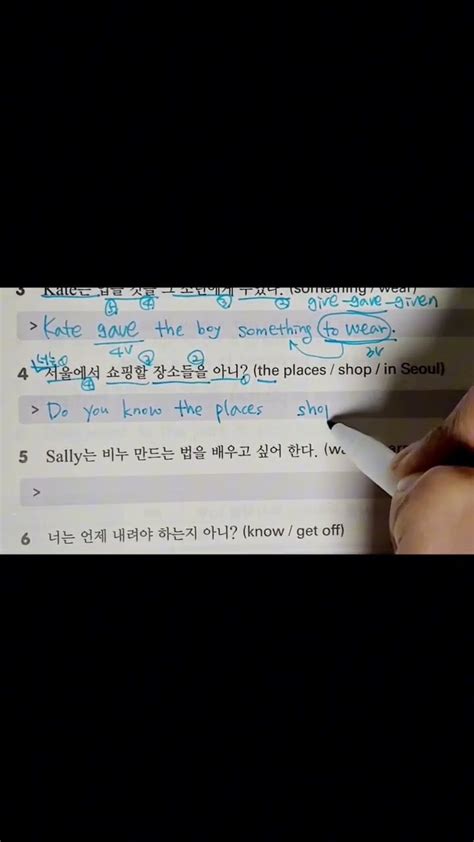 3 Kate는 입을 것을 그 소년에게 주었다. (something / wear)
⑤ ④ ③ ② give-gave-given
> Kate gave the boy something to wear.
4V 3V
너는 ② ②
4 서울에서 쇼핑할 장소들을 아니? (the places / shop / in Seoul)
④
> Do you know the places shop
5 Sally는 비누 만드는 법을 배우고 싶어 한다.
>
6 너는 언제 내려야 하는지 아니? (know / get off)